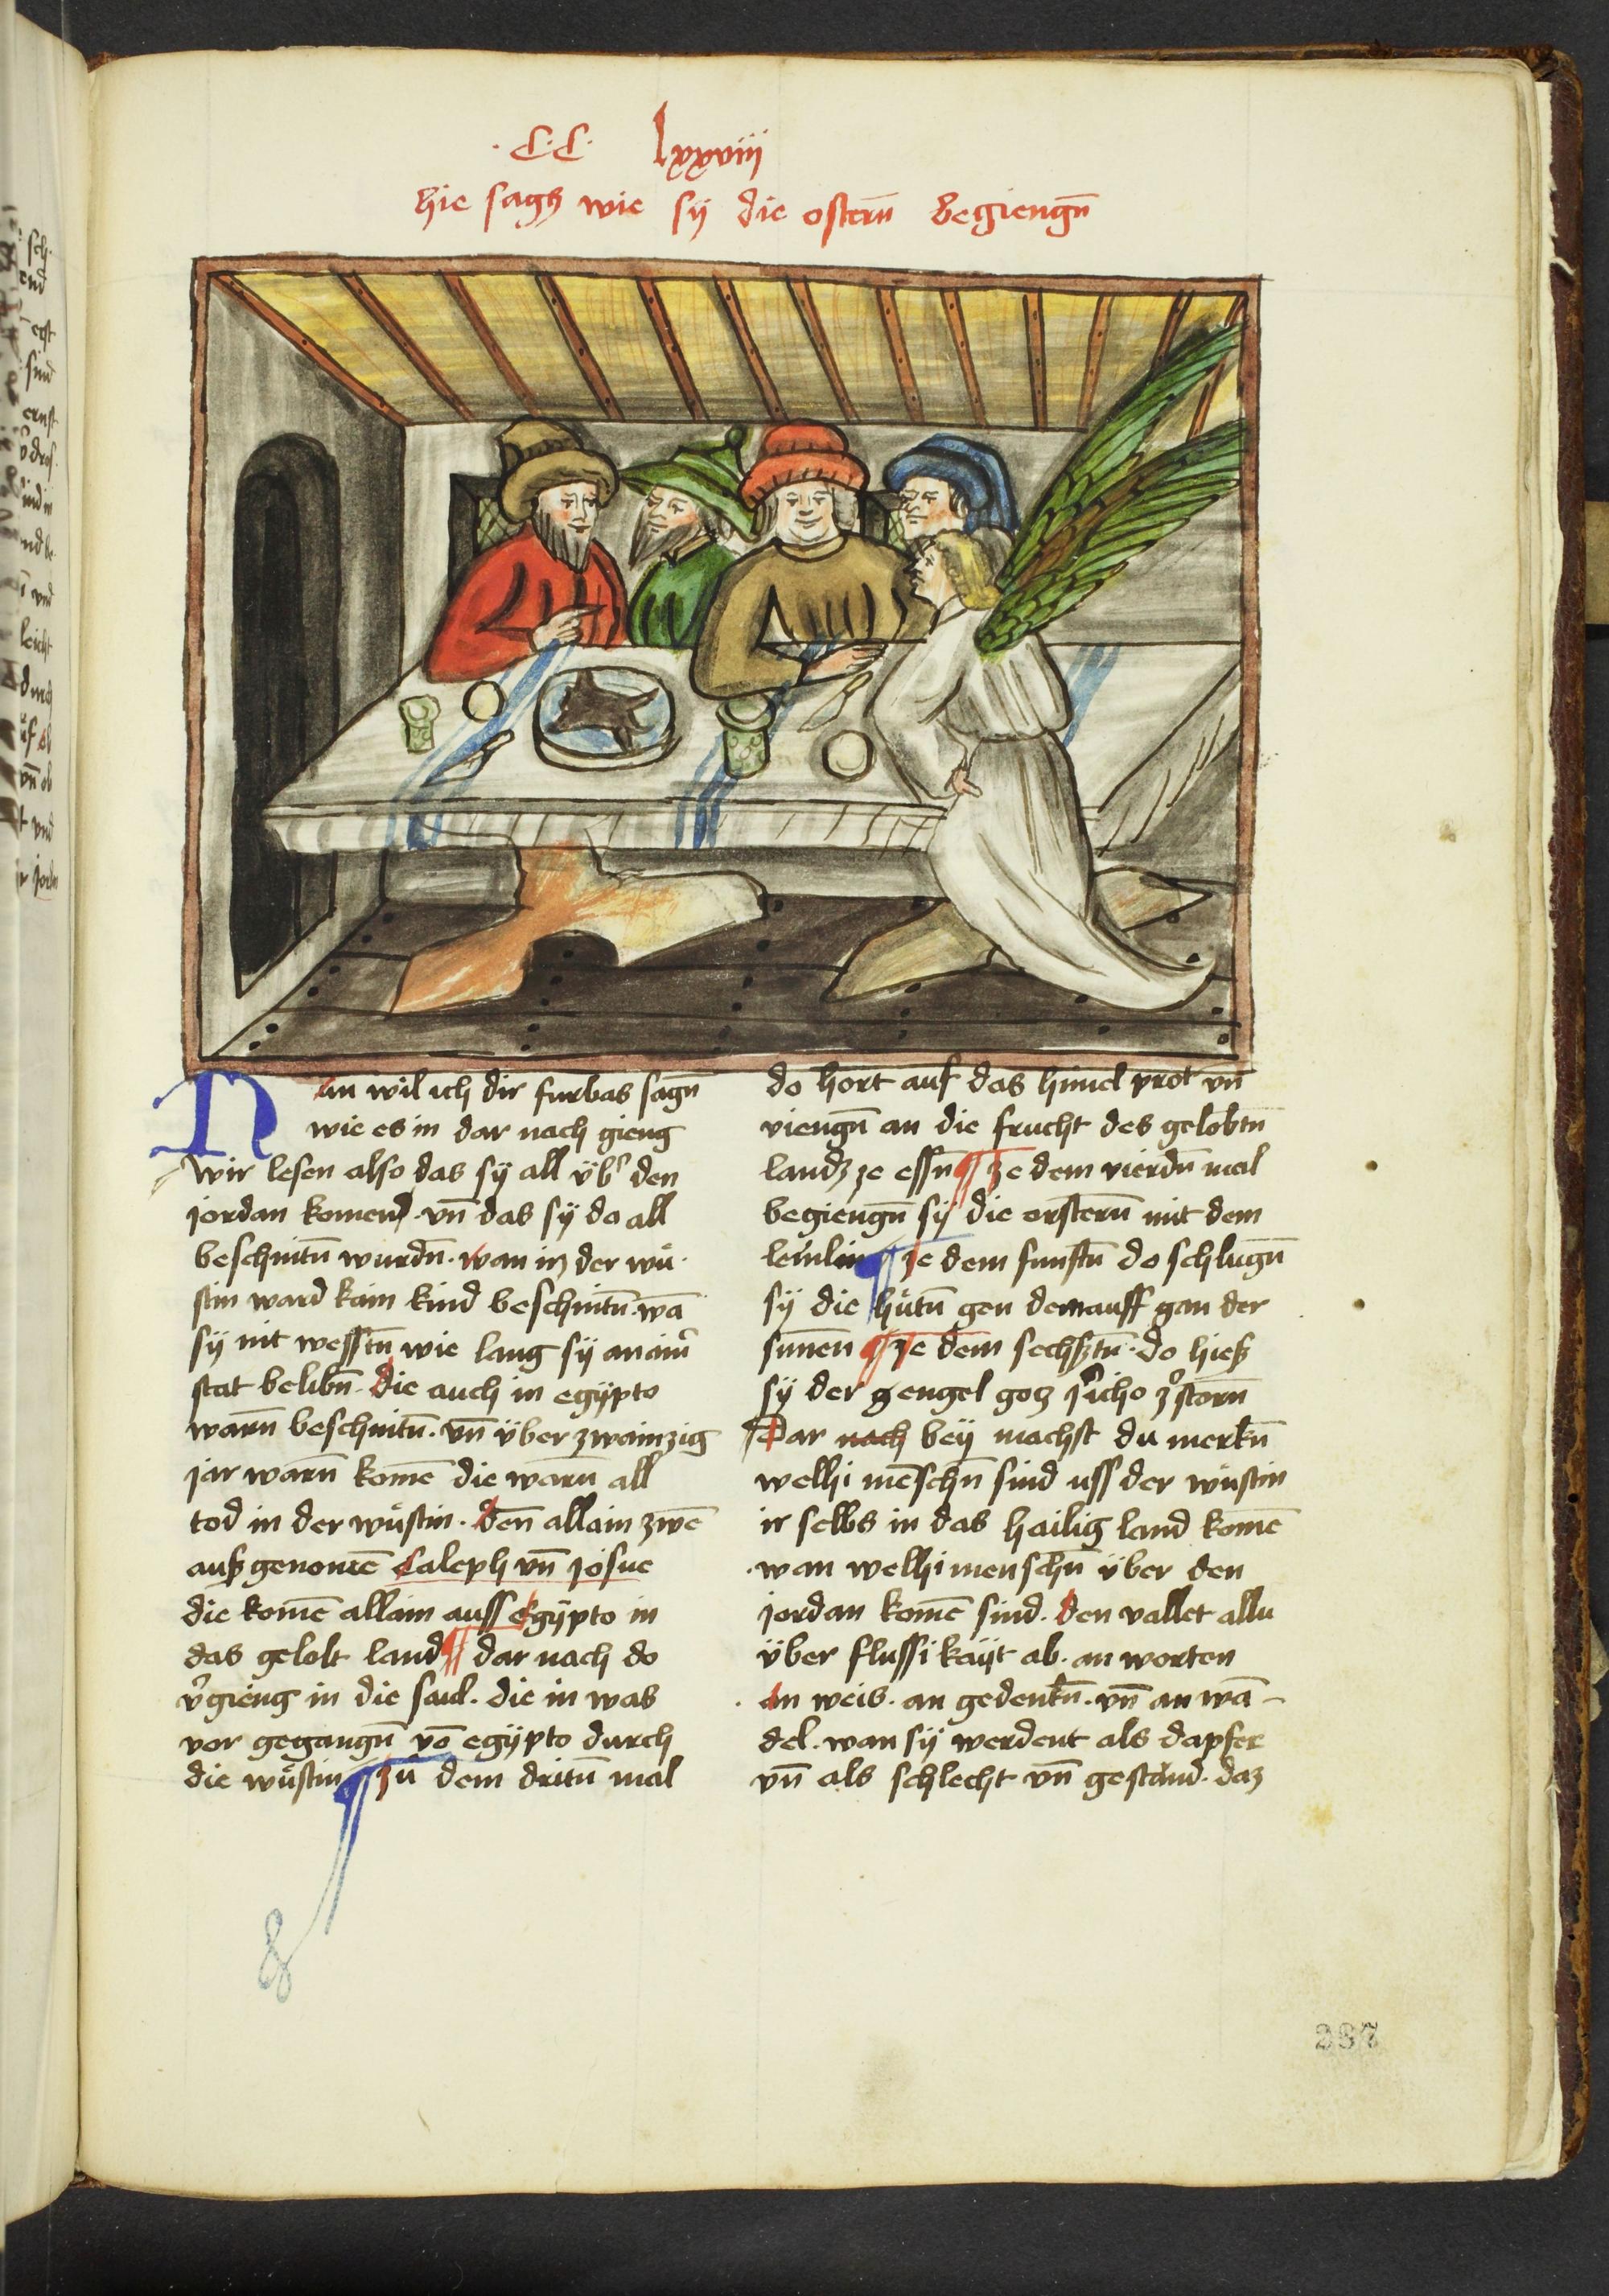 ·C·C· lxxviij
hie sagtz wie sÿ die ostern̄ begiengn̄
Nun wil ich dir furbas sagn̄
wie es in dar nach gieng
wir lesen also das sÿ all v̈b' den
jordan komend · vn̄ das sÿ do all
beschnitn̄ wurdn̄ · wan in der wü
stin ward kain kind beschnitn̄ · wā
sÿ nit wesstn̄ wie lang sÿ an aim̄
stat belibn̄ · die auch in egÿpto
warn̄ beschnitn̄ · vn̄ v̈ber zwainzig
jar warn̄ komē die warn̄ all
tod in der wüstin · den̄ allain zwē
auß genomē Caleph vn̄ josue
die komē allain auss egÿpto in
das gelobt land ¶ dar nach do
v'gieng in die saul · die in was
vor gegangn̄ vō egÿpto durch
die wüstin ¶ zů dem dritn̄ mal
do hort auf das himel prot vn̄
viengn̄ an die frucht des gelobtn̄
landz ze essn̄ ¶ ze dem vierdn̄ mal
begiengn̄ sÿ die orstern̄ mit dem
lemlin ¶ ze dem funftn̄ do schlugn̄
sÿ die hütn̄ gen dem auff gan der
sunnen ¶ ze dem sechßtn̄ · do hieß
sÿ der engel gotz j'icho z'storn̄
Dar nach beÿ machst du merkn̄
welhi mēschn̄ sind uss der wüstin
ir selbs in das hailig land komē
· wan welhi menschn̄ v̈ber den
jordan komē sind · den vallet allu
v̈ber flussikaÿt ab · an worten
· an weis · an gedenkn̄ · vn̄ an wā
del · wan sÿ werdent als dapfer
vn̄ als schlecht vn̄ gestand · daz
287